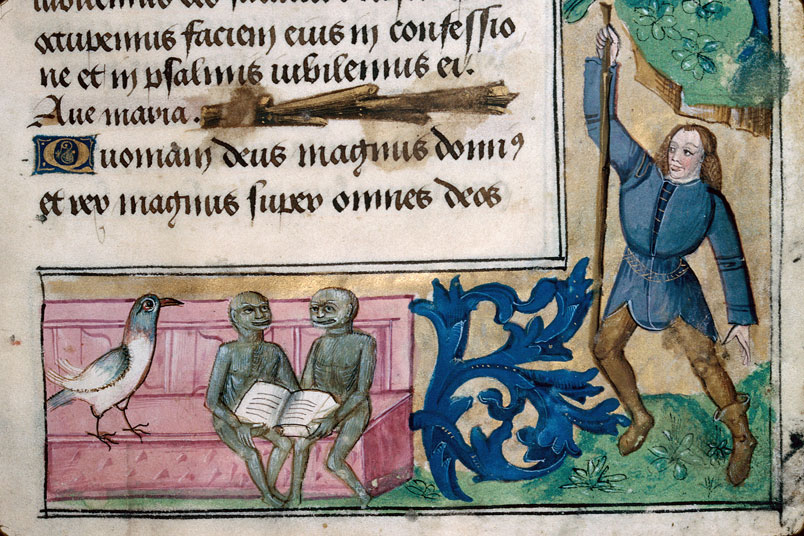 occupemus faciem eius in confessio
ne et in psalmis iubilemus ei.
Aue maria.
Quoniam deus magnus domin9
et rex magnus super omnes deos